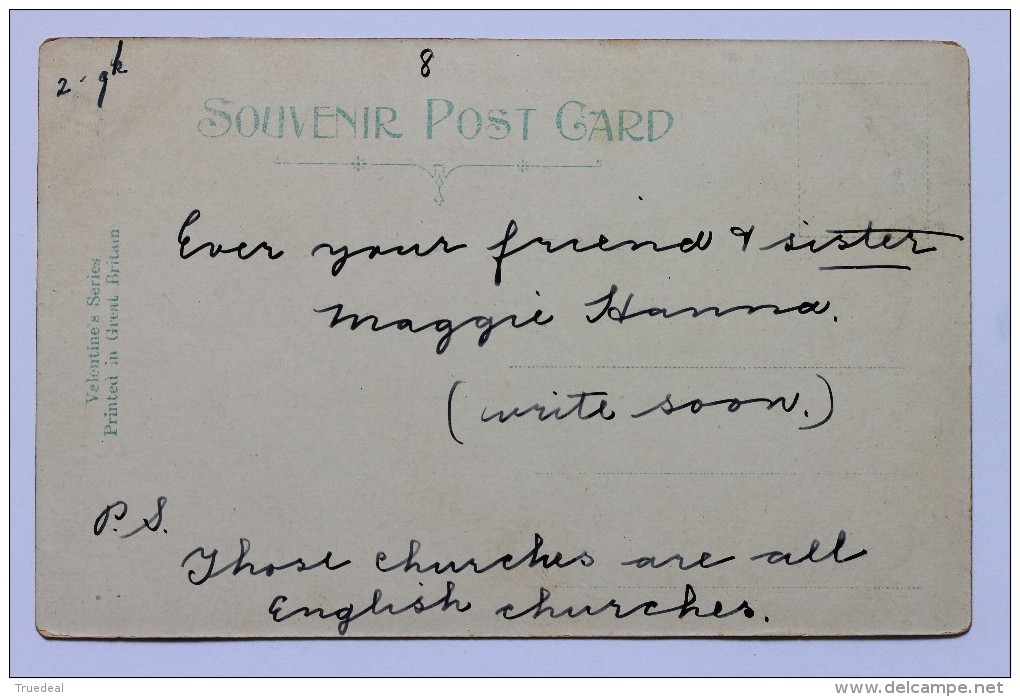 2 - gk
8
SOUVENIR POST CARD
Valentine's Series
Printed in Great Britain
Ever your friend & sister
Maggie Hanna.
(write soon.)
P.S.
Those churches are all
English churches.
Truedeal
www.delcampe.net